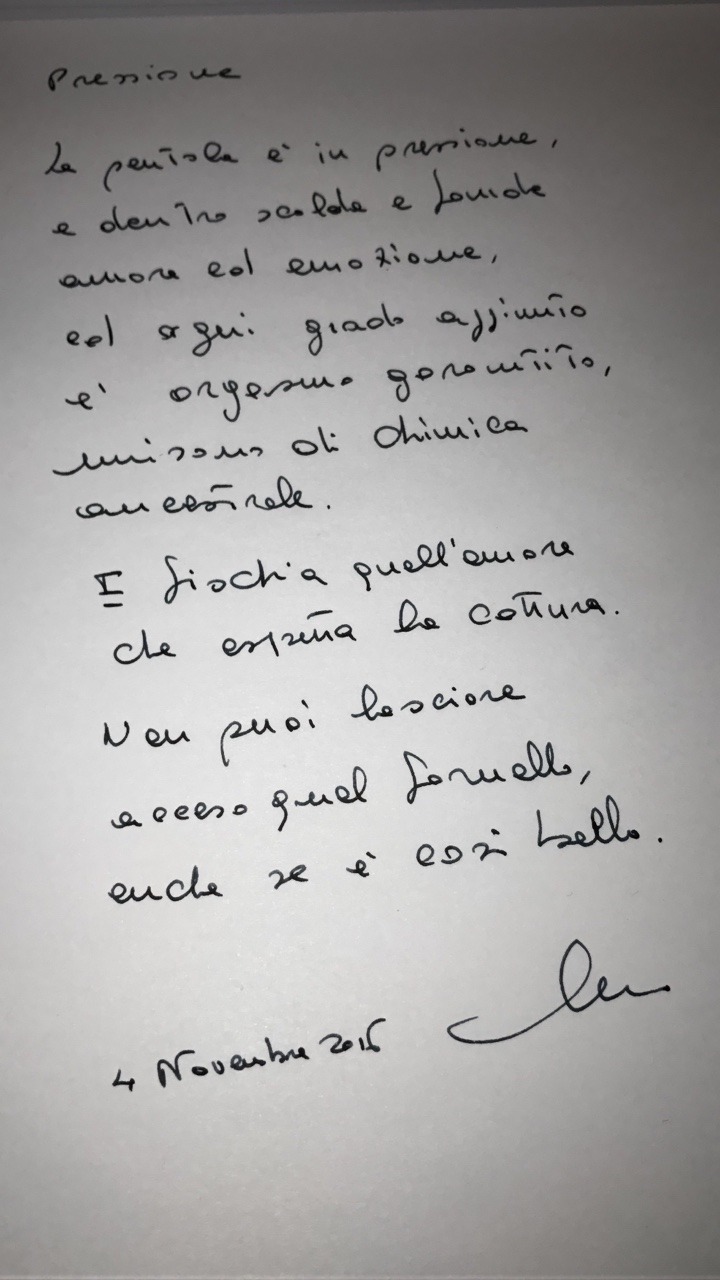 Pressione
La pentola è in pressione,
e dentro scalda e fonde
amore ed emozione,
ed ogni grado aggiunto
e' orgasmo garantito,
unisono di chimica
ancestrale.
E fischia quell'amore
che aspetta la cottura.
Non puoi lasciare
acceso quel fornello,
anche se è così bello.
4 Novembre